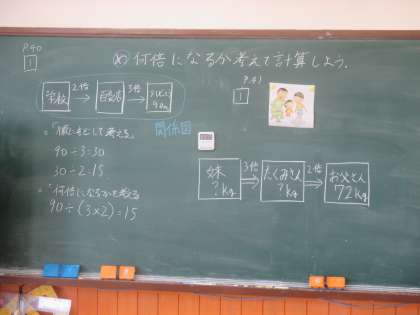 P.40
1
め 何倍になるか考えて計算しよう。
学校 2倍 百貨店 3倍 テレビとう 90m
関係図
・「順にもどして考える」
90÷3=30
30÷2=15
・「何倍になるかを考える
90÷(3×2)=15
P.41
1
妹 ?kg 3倍 たくみさん ?kg 2倍 お父さん 72kg